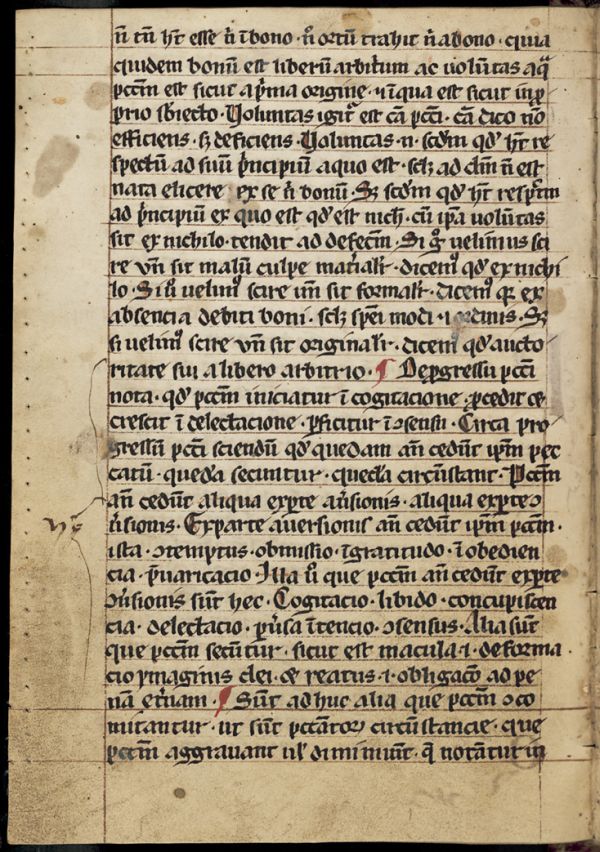 n̄ tn̄ hr̄t esse n̄ ī bono · n̄ ortū trahit n̄ a bono · quia
quidem bonū est liberū arbitriū ac uolūtas a q̄
pcc̄m est sicut a p̄ma origine · ⁊ in qua est sicut in p̱
prio sb̄iecto · Voluntas igit᷑ est cā pcc̄i · cā dico nō
efficiens · sꝫ deficiens · Voluntas · n · scdm̄ qd̓ hr̄t re
spectū ad suū p̄ncipiū a quo est · sclꝫ ad dm̄ n̄ est
nata elicere ex se n̄ bonū · Sꝫ scdm̄ qd̓ hr̄t respc̄tm
ad p̄ncipiū ex quo est qd̓ est nich̓ · cū ip̄a uolūtas
sit ex nichilo · tendit ad defectm̄ · Si g̊ uelimus sci
re vn̄ sit malū culpe mat̓ialit᷑ · dicem᷒ qd̓ ex nichi
lo · Si ū uelim᷒ scire vn̄ sit formalit᷑ · dicem᷒ qꝛ ex
absencia debiti boni · sclꝫ sp̄ei modi ⁊ ordinis · Sꝫ
si uelim᷒ scire vn̄ sit originalit᷑ · dicem᷒ qd̓ aucto
ritate sui a libero arbitrio · ¶ De ꝓgressu pcc̄i
nota · qd̓ pcc̄m iniciatur ī cogitacione · ꝓcedit ⁊
crescit ī delectacione · ꝑficitur ī ↄsensu · Circa pro
gressū pcc̄i sciendū qd̓ quedam an̄cedūt ip̄m pec
catū · queda secuntur · queda circūstant · Pcc̄m
an̄cedūt aliqua ex ꝑte au̓sionis · aliqua ex ꝑte ↄ
u̓sionis · Ex parte auersionis an̄cedūt ip̄m pcc̄m ·
ista · ↄtemptus · obmissio · īgratitudo · īobedien
cia · p̄uaricacio · Illa ū que pcc̄m an̄cedūt ex ꝑte
ↄu̓sionis sūt hec · Cogitacio · libido · concupiscen
cia · delectacio · ꝑu̓sa ītencio · ↄsensus · Alia sūt
que pcc̄m secūtur · sicut est macula · i · deforma
cio ymaginis dei · ⁊ reatus · i · obligac̄o ad pe
nā et̓nam · ¶ Sūt adhuc alia que pcc̄m ↄco
mitantur · ut sūt pcc̄ator̄ circūstancie · que
pcc̄m aggrauant ul̓ diminiūt · q̄ notātur in